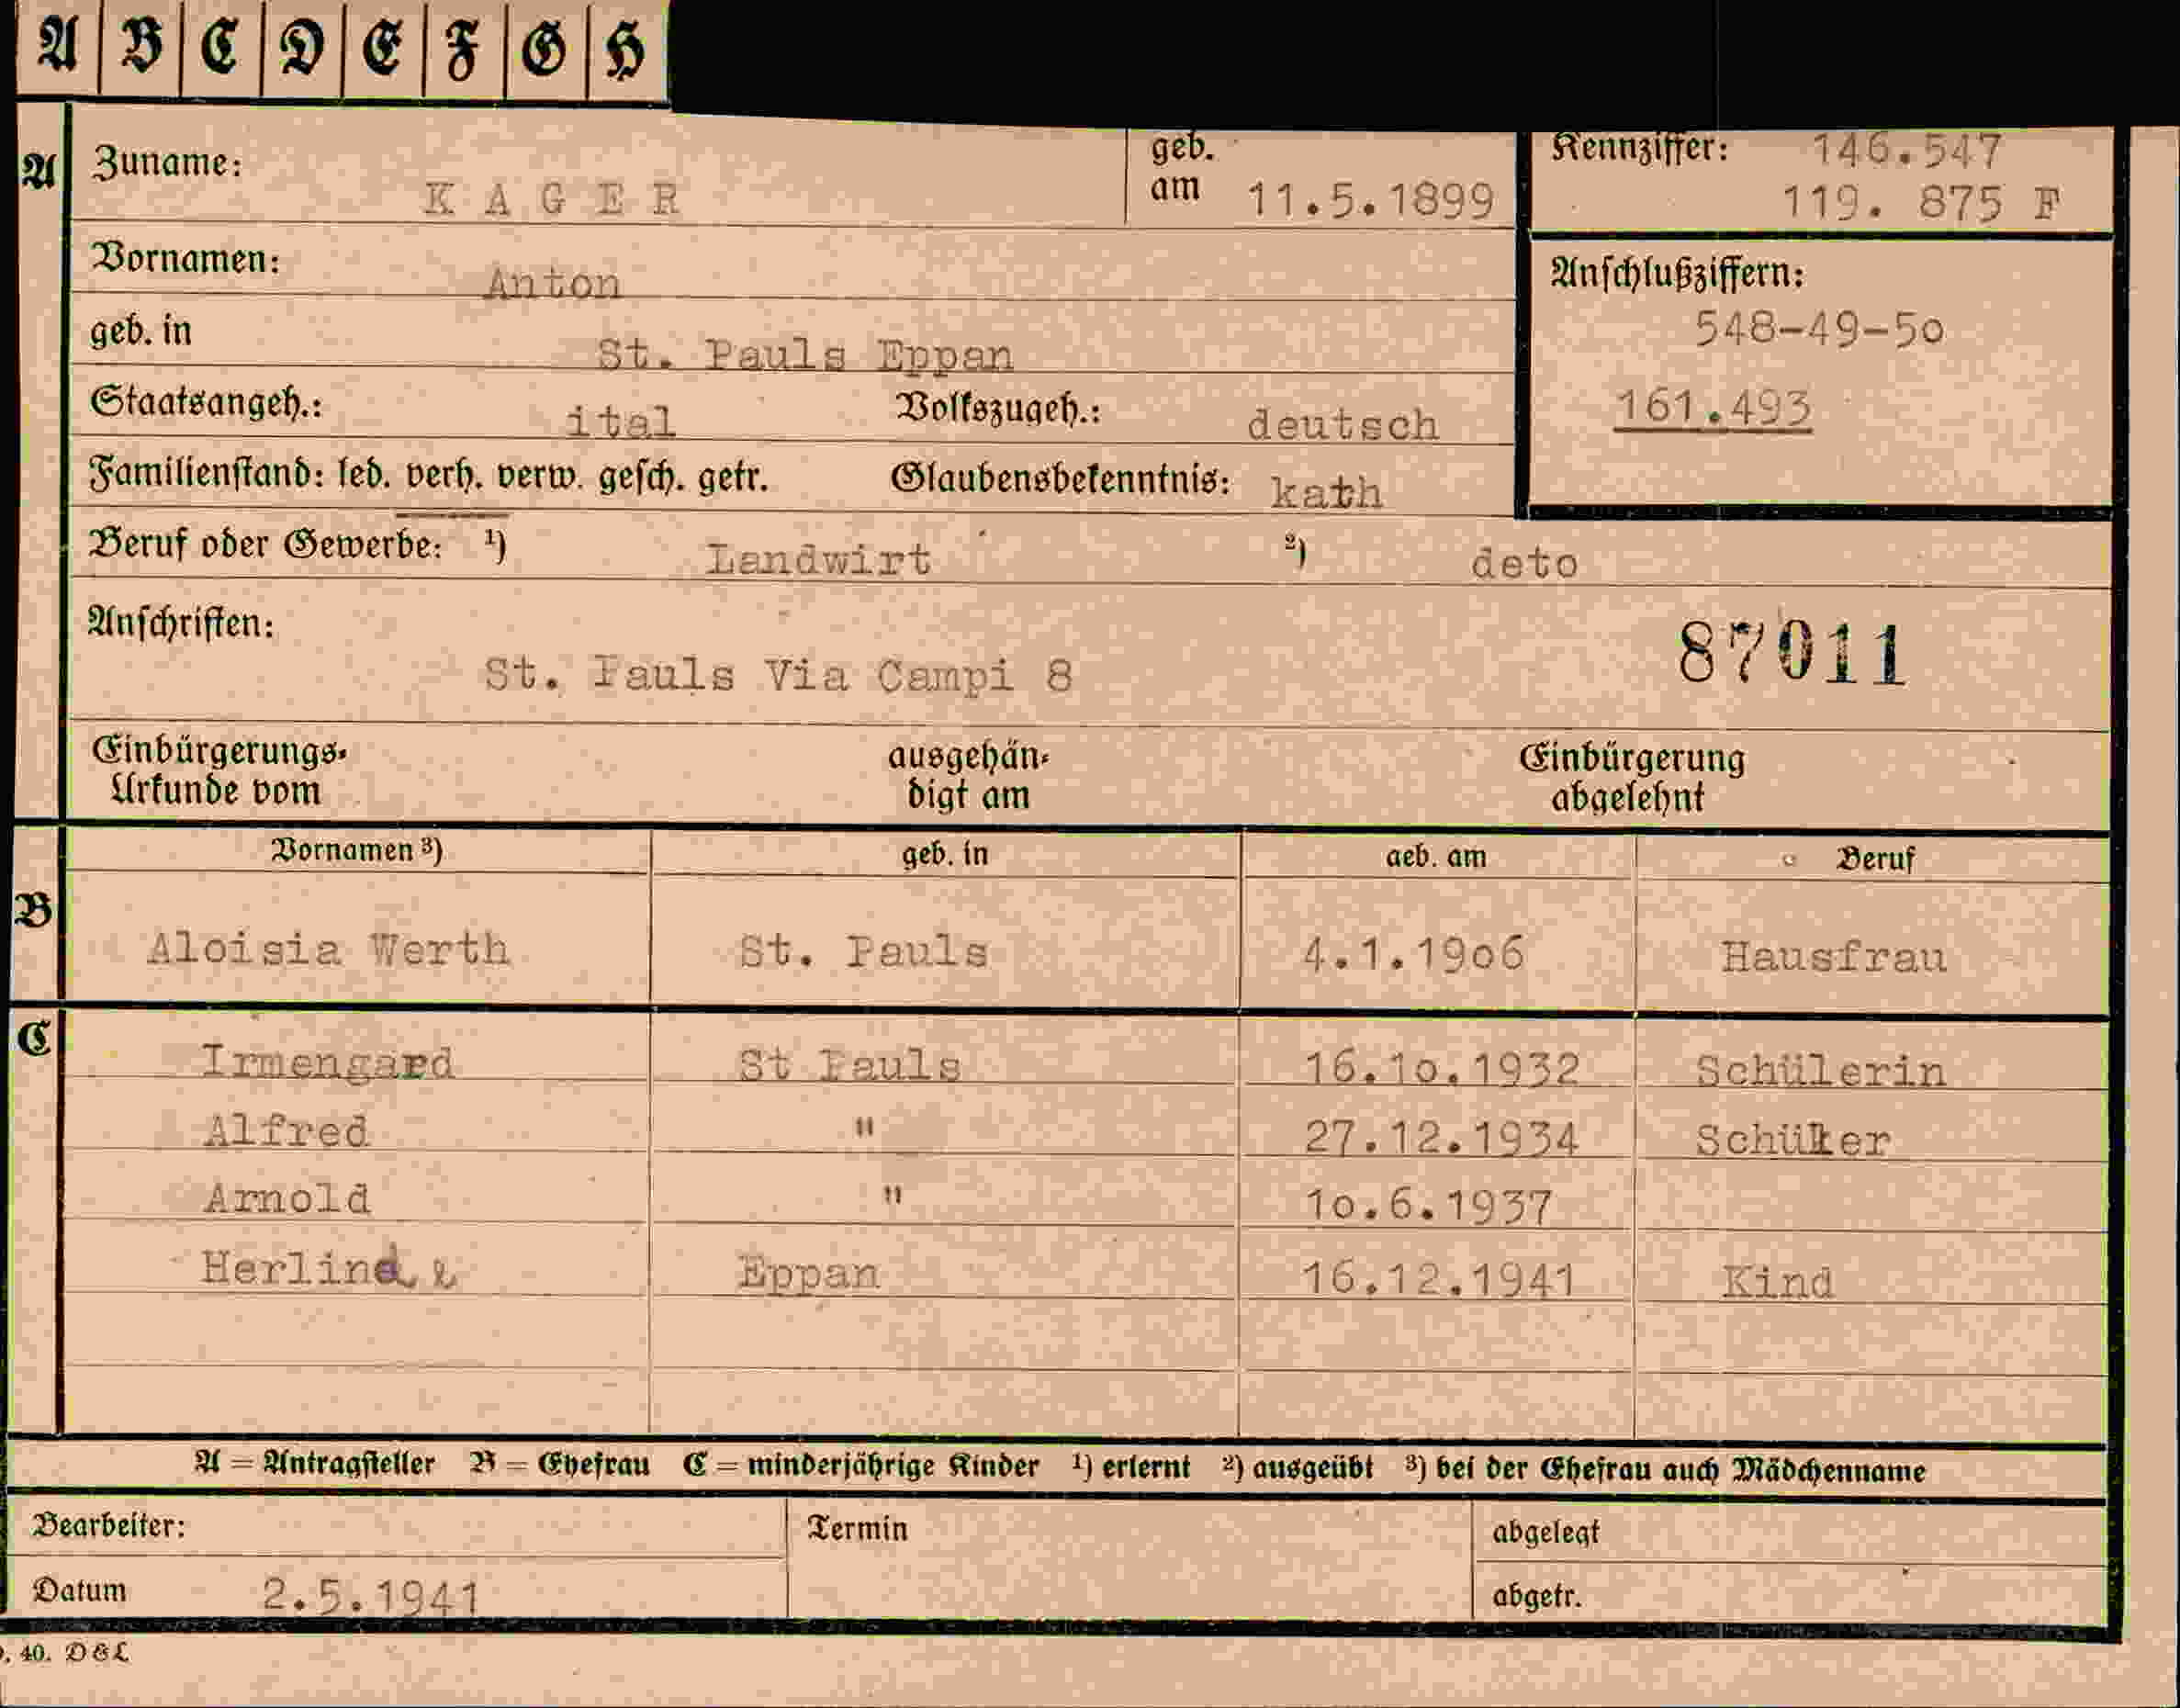 A B C D E F G H
A Zuname: KAGER geb. am 11.5.1899
Kennziffer: 146.547
119. 875 F
Vornamen: Anton
Anschlußziffern:
548-49-50
161.493
geb. in St. Pauls Eppan
Staatsangeh.: ital Volkszugeh.: deutsch
Familienstand: led. verh. verw. gesch. getr. Glaubensbekenntnis: kath
Beruf oder Gewerbe: 1) Landwirt 2) deto
Anschriften:
87011
St. Pauls Via Campi 8
Einbürgerungs- ausgehän- Einbürgerung
Urkunde vom digt am abgelehnt
Vornamen 3) geb. in geb. am Beruf
B Aloisia Werth St. Pauls 4.1.1906 Hausfrau
C Irmengard St Pauls 16.10.1932 Schülerin
Alfred " 27.12.1934 Schüler
Arnold " 10.6.1937
Herlinde Eppan 16.12.1941 Kind
A = Antragsteller B = Ehefrau C = minderjährige Kinder 1) erlernt 2) ausgeübt 3) bei der Ehefrau auch Mädchenname
Bearbeiter: Termin abgelegt
Datum 2.5.1941 abgetr.
. 40. D&L